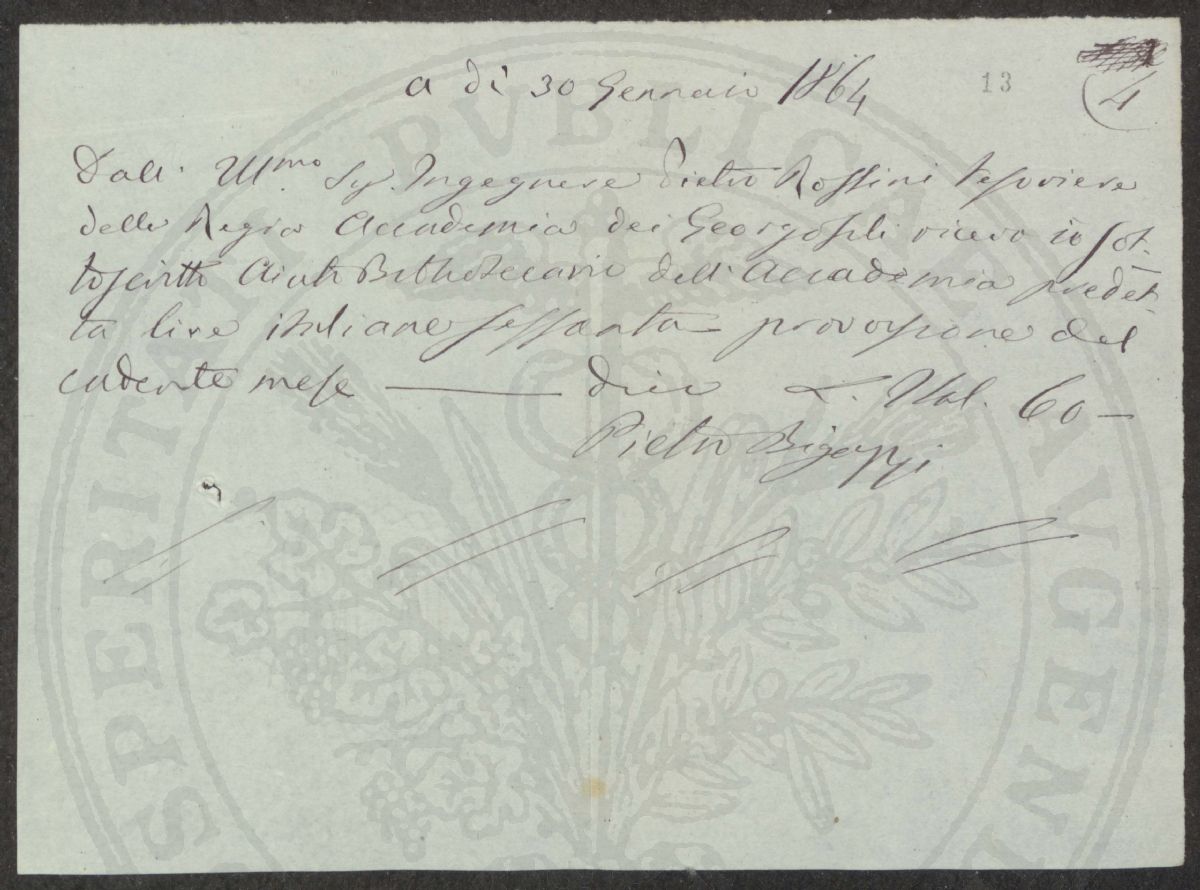 a dì 30 Gennaio 1864
13
4
Dall' Ill.mo Sig. Ingegnere Pietro Rossini Tesoriere
della Regia Accademia dei Georgofili ricevo io sot-
toscritto Aiuto Bibliotecario dell' Accademia predet-
ta lire italiane sessanta provvisione del
cadente mese — dico L. Ital. 60 —
Pietro Bigazzi
PROSPERITATI PVBLICAE AVGENDAE